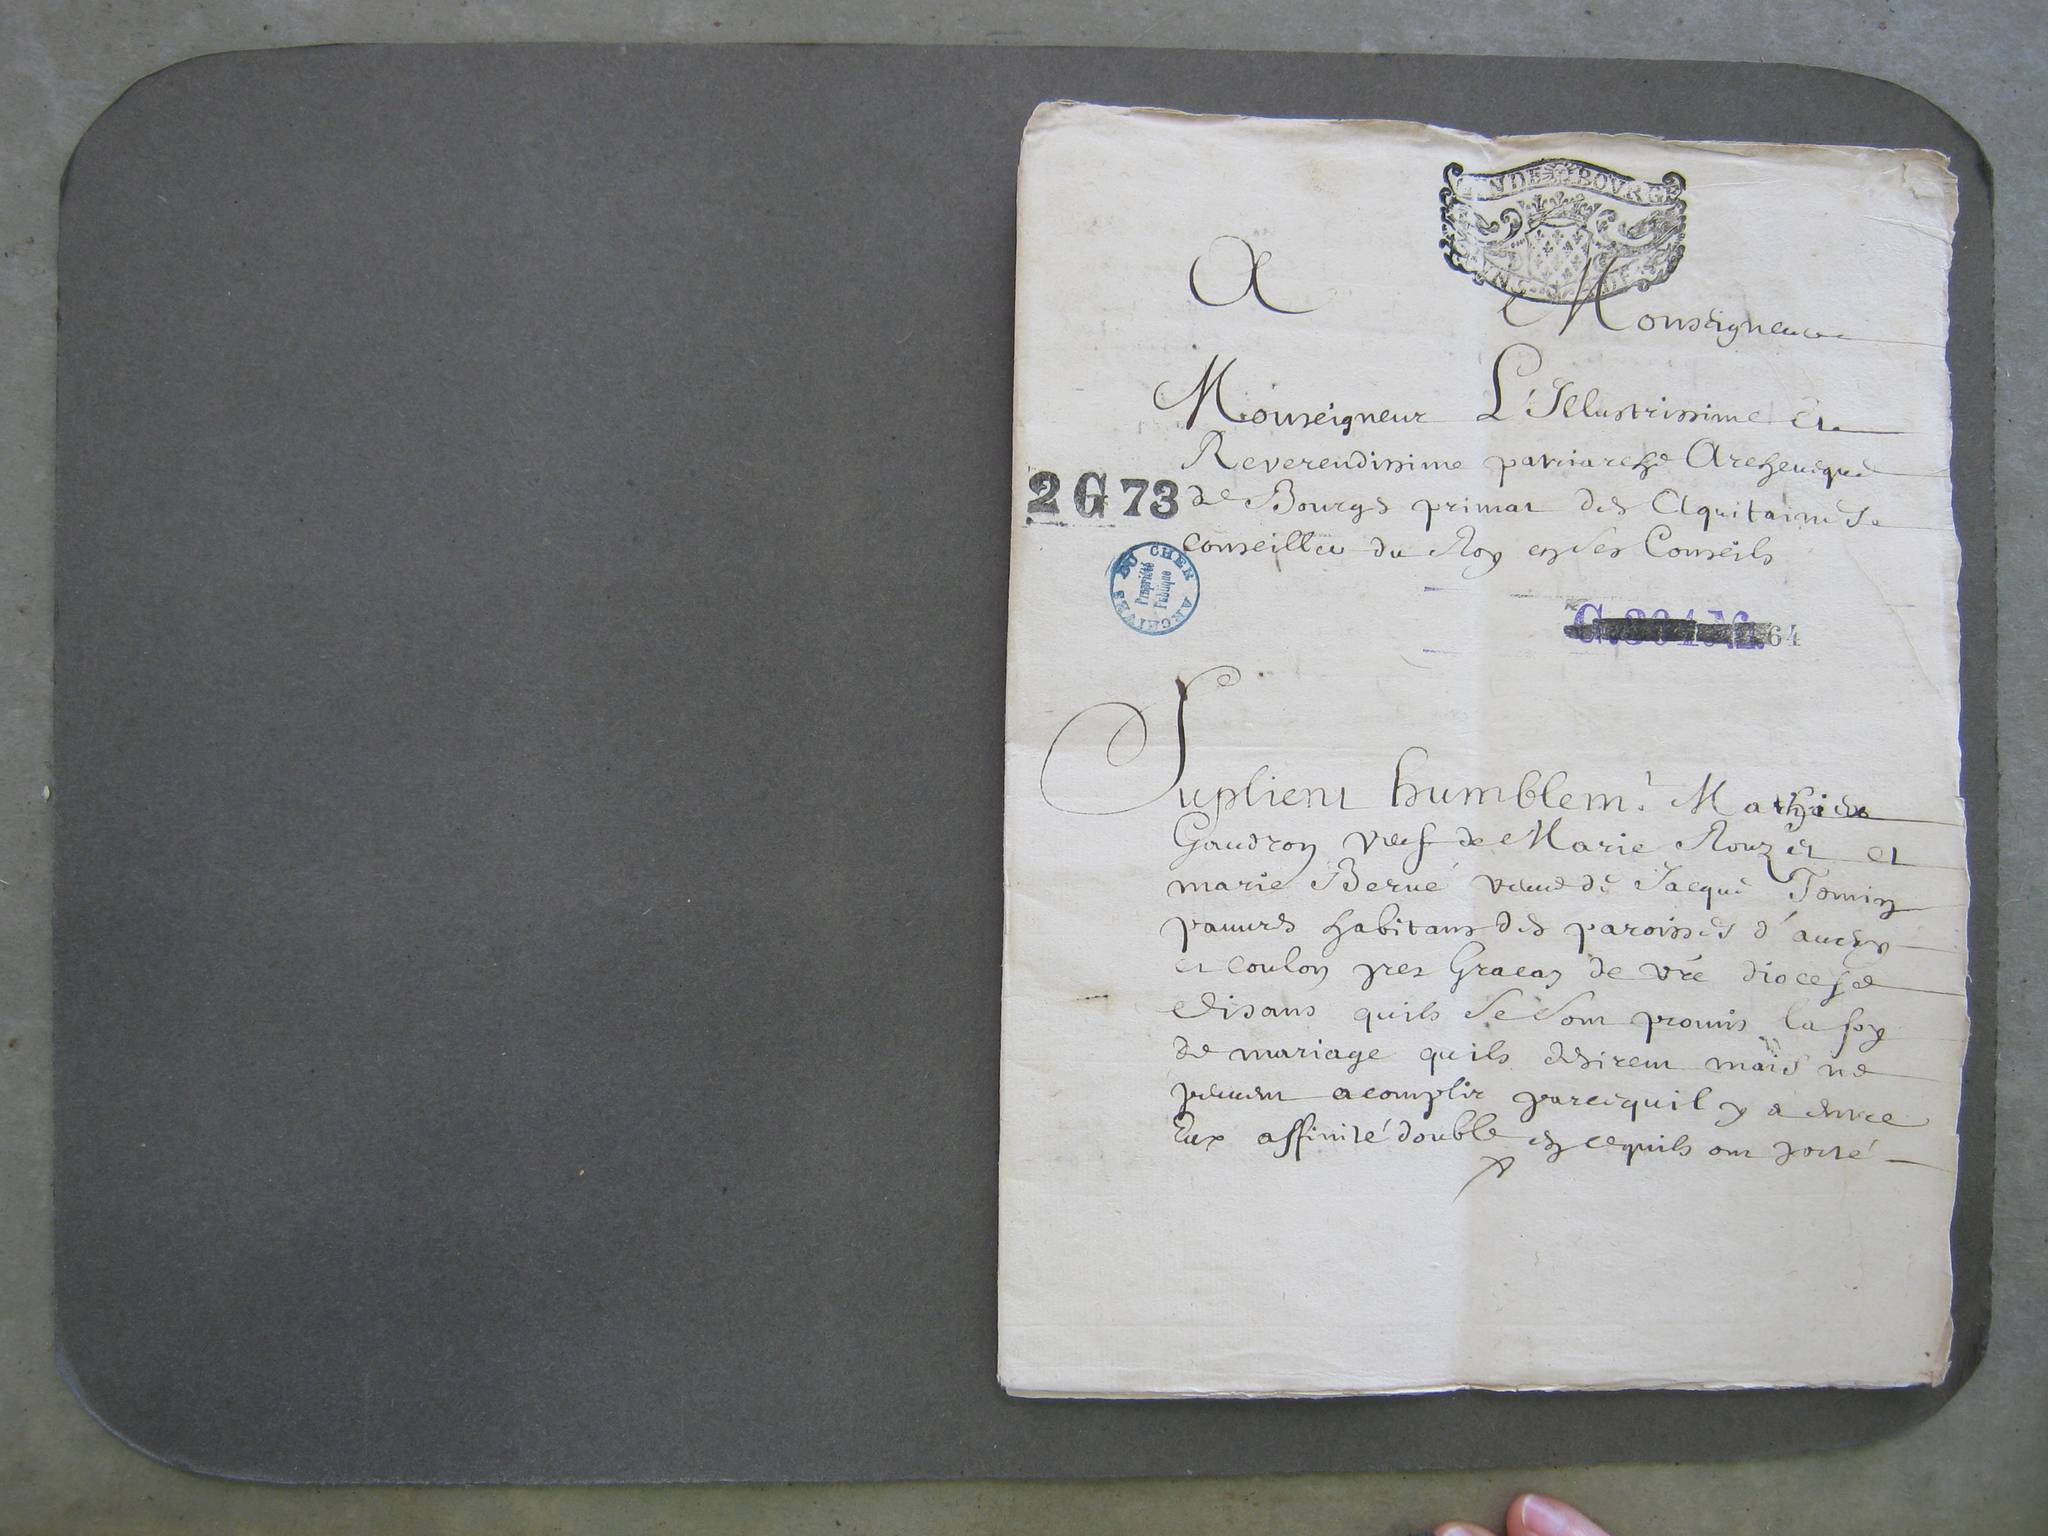 GEN DE BOVRGE
A Monseigneur
Monseigneur L'Illustrissime et
Reverendissime patriarche Archeuêque
2 G 73
de Bourges primat des Aquitaines
conseiller du Roy en ses Conseils
ARCHIVES DU CHER
Propriété
Publique
64
Suplient humblemt. Mathieu
Gaudron veuf de Marie Rouzet et
marie Berué veuue de Jacque Tomin
pauures habitans des paroisses d'
et coulon pres Gracay de vre diocese
disans quils se sont promis la foy
de mariage quils desirent mais ne
peuuent acomplir parcequil y a entre
Eux affinité double en cequils ont